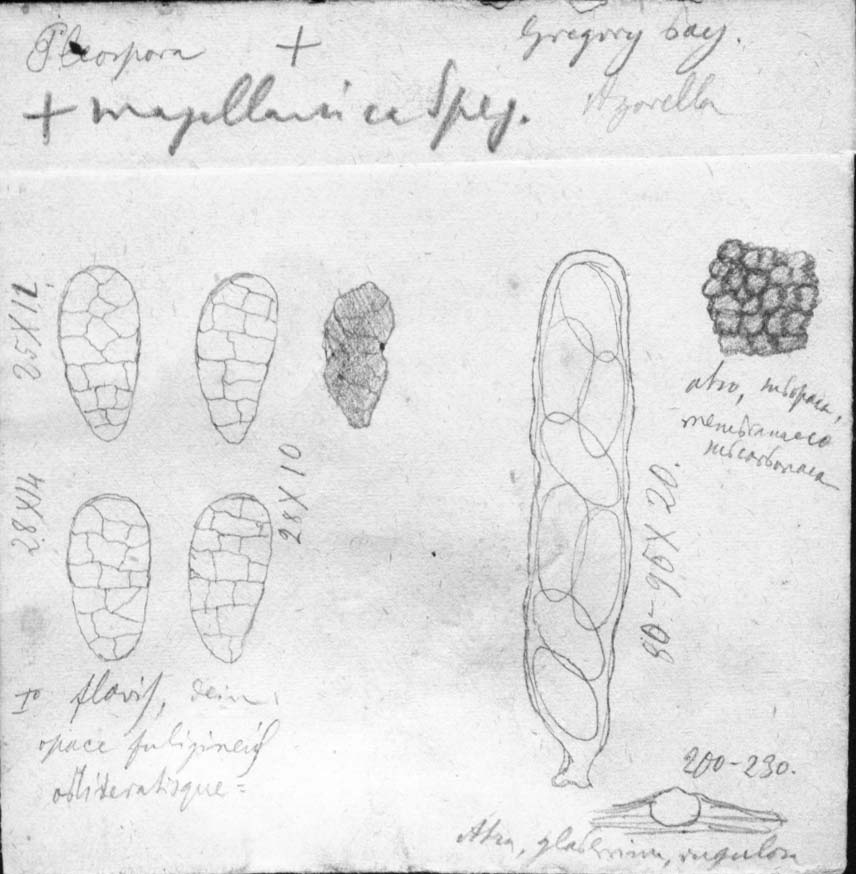 Pleospora +
Gregory bay.
+ magellanica Speg.
Azorella
25X12
28X14
28X10
80-95X20.
atro, subopaca,
membranaceo
subcarbonacea
I° flavis, dein
opace fuligineis
obliteratisque =
200-230.
Atra, glaberrima, rugulosa